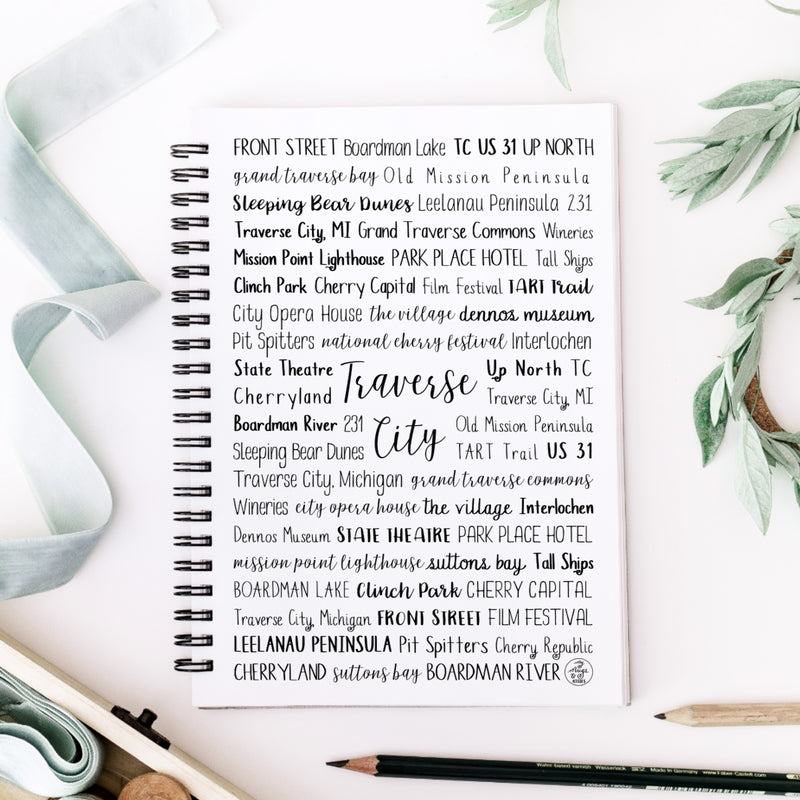 FRONT STREET Boardman Lake TC US 31 UP NORTH
grand traverse bay Old Mission Peninsula
Sleeping Bear Dunes Leelanau Peninsula 231
Traverse City, MI Grand Traverse Commons Wineries
Mission Point Lighthouse PARK PLACE HOTEL Tall Ships
Clinch Park Cherry Capital Film Festival TART Trail
City Opera House the village dennos museum
Pit Spitters national cherry festival Interlochen
State Theatre Traverse Up North TC
Cherryland Traverse City, MI
Boardman River 231 City Old Mission Peninsula
Sleeping Bear Dunes TART Trail US 31
Traverse City, Michigan grand traverse commons
Wineries city opera house the village Interlochen
Dennos Museum STATE THEATRE PARK PLACE HOTEL
mission point lighthouse suttons bay Tall Ships
BOARDMAN LAKE Clinch Park CHERRY CAPITAL
Traverse City, Michigan FRONT STREET FILM FESTIVAL
LEELANAU PENINSULA Pit Spitters Cherry Republic
CHERRYLAND suttons bay BOARDMAN RIVER
Made in Germany www.Faber-Castell.com